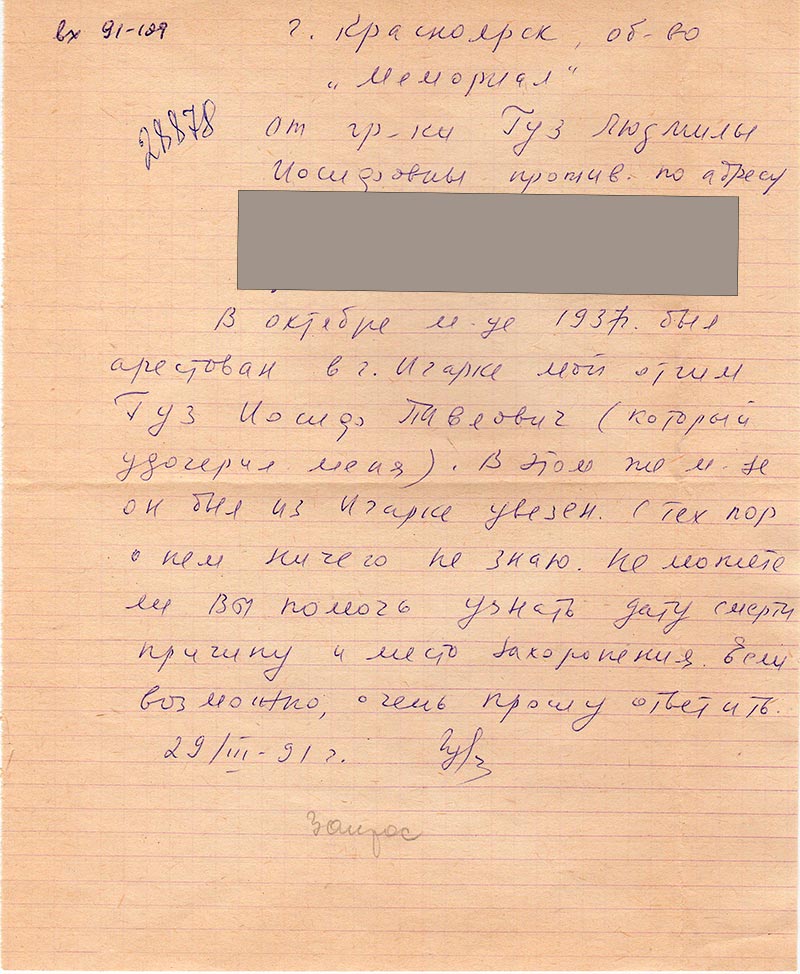 вх 91-109
г. Красноярск, об-во
„Мемориал"
28878
от гр-ки Гуз Людмилы
Иосифовны прожив. по адресу
В октябре м-це 1937г. был
арестован в г. Игарке мой отчим
Гуз Иосиф Павлович (который
удочерил меня). В этом же м-це
он был из Игарке увезен. С тех пор
о нем ничего не знаю. Не можете
ли Вы помочь узнать дату смерти
причину и место захоронения. Если
возможно, очень прошу ответить.
29/III-91 г.
Запрос